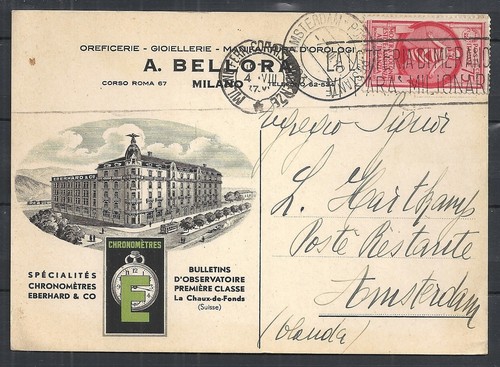 OREFICERIE - GIOIELLERIE - MANIFATTURA D'OROLOGI
A. BELLORA
CORSO ROMA 67
MILANO
TELEFONO
AMSTERDAM
4 · VIII
EBERHARD & CO
SPÉCIALITÉS
CHRONOMÈTRES
EBERHARD & CO
CHRONOMÈTRES
E
BULLETINS
D'OBSERVATOIRE
PREMIÈRE CLASSE
La Chaux-de-Fonds
(Suisse)
Egregio Signor
L. Hartkamp
Poste Restante
Amsterdam
(Olanda)